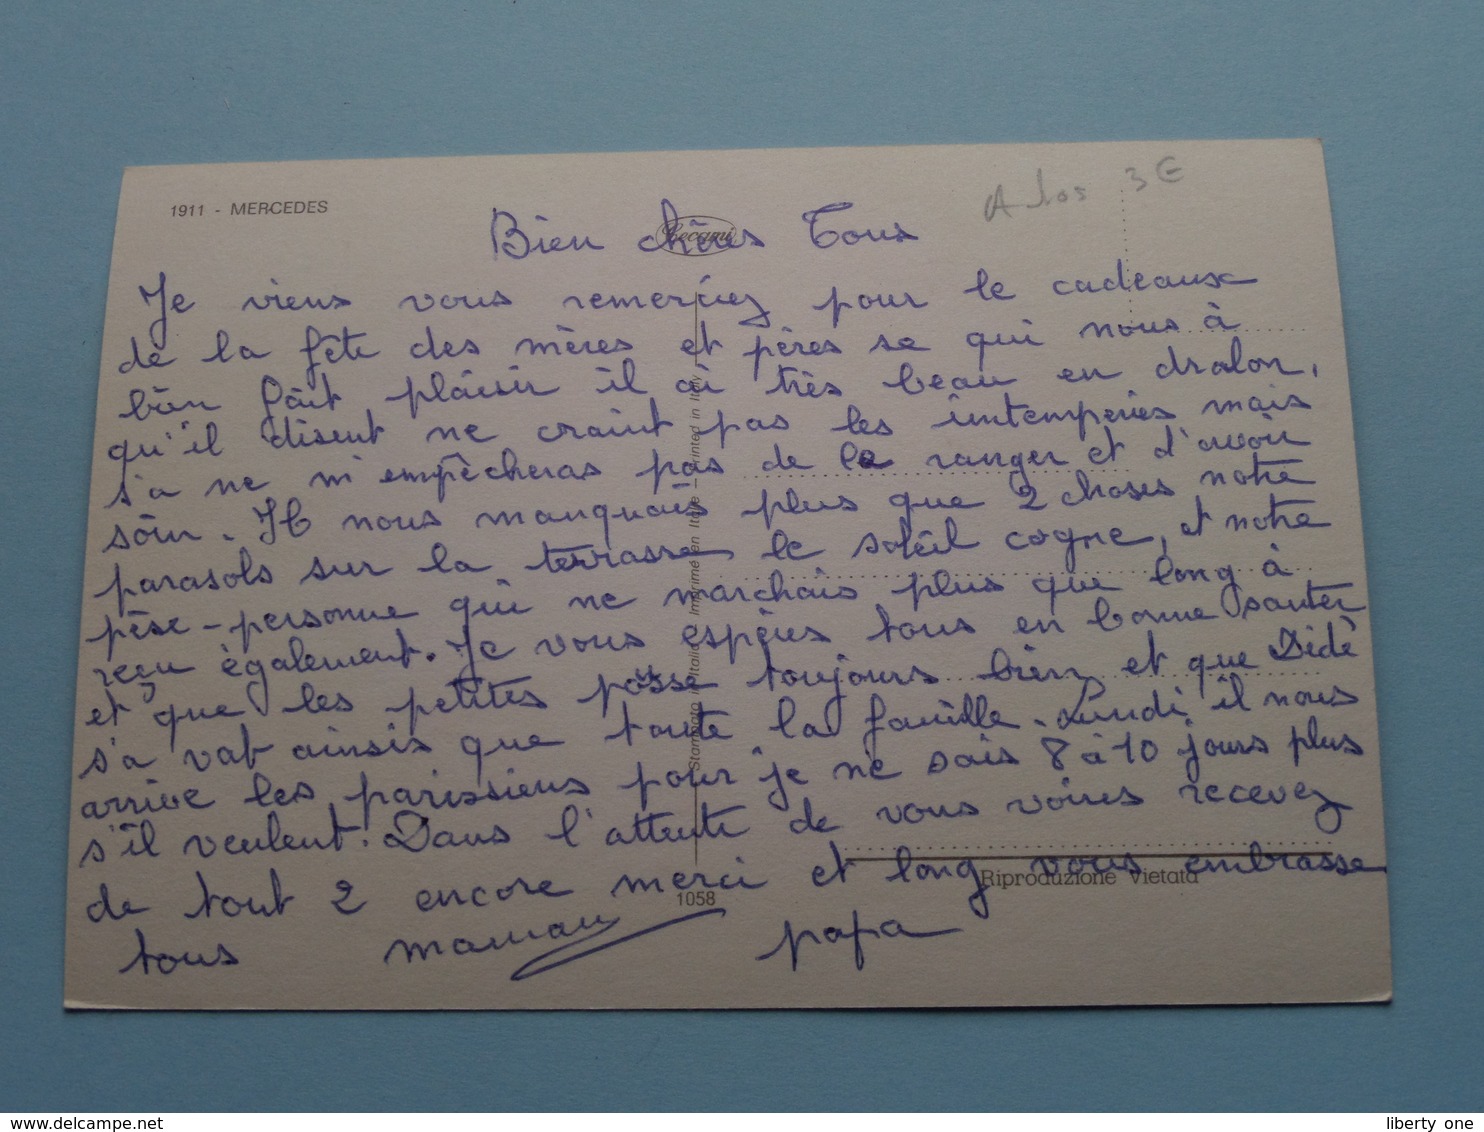 1911 - MERCEDES
3 €
Cecami
Bien chères Tous
Je viens vous remerciez pour le cadeaux
de la fête des mères et pères se qui nous à
bien fâit plaisir il ai très beau en dralon,
qu'il disent ne craint pas les imtemperies mais
s'a ne m'empêcheras pas de le ranger et d'avoir
soin. Il nous manquais plus que 2 choses notre
parasols sur la terrasse le soleil cogne, et notre
pèse-personne qui ne marchais plus que long à
reçu également. Je vous espères tous en bonne santer
et que les petites pousse toujours bien et que Didè
s'a vat ainsis que toute la famille. Lundi il nous
arrive les parissiens pour je ne sais 8 à 10 jours plus
s'il veulent. Dans l'attente de vous voires recevez
de tout 2 encore merci et long vous embrasse
tous maman papa
Stampato in Italia - Imprimé en Italie - Printed in Italy
Riproduzione Vietata
1058
liberty one